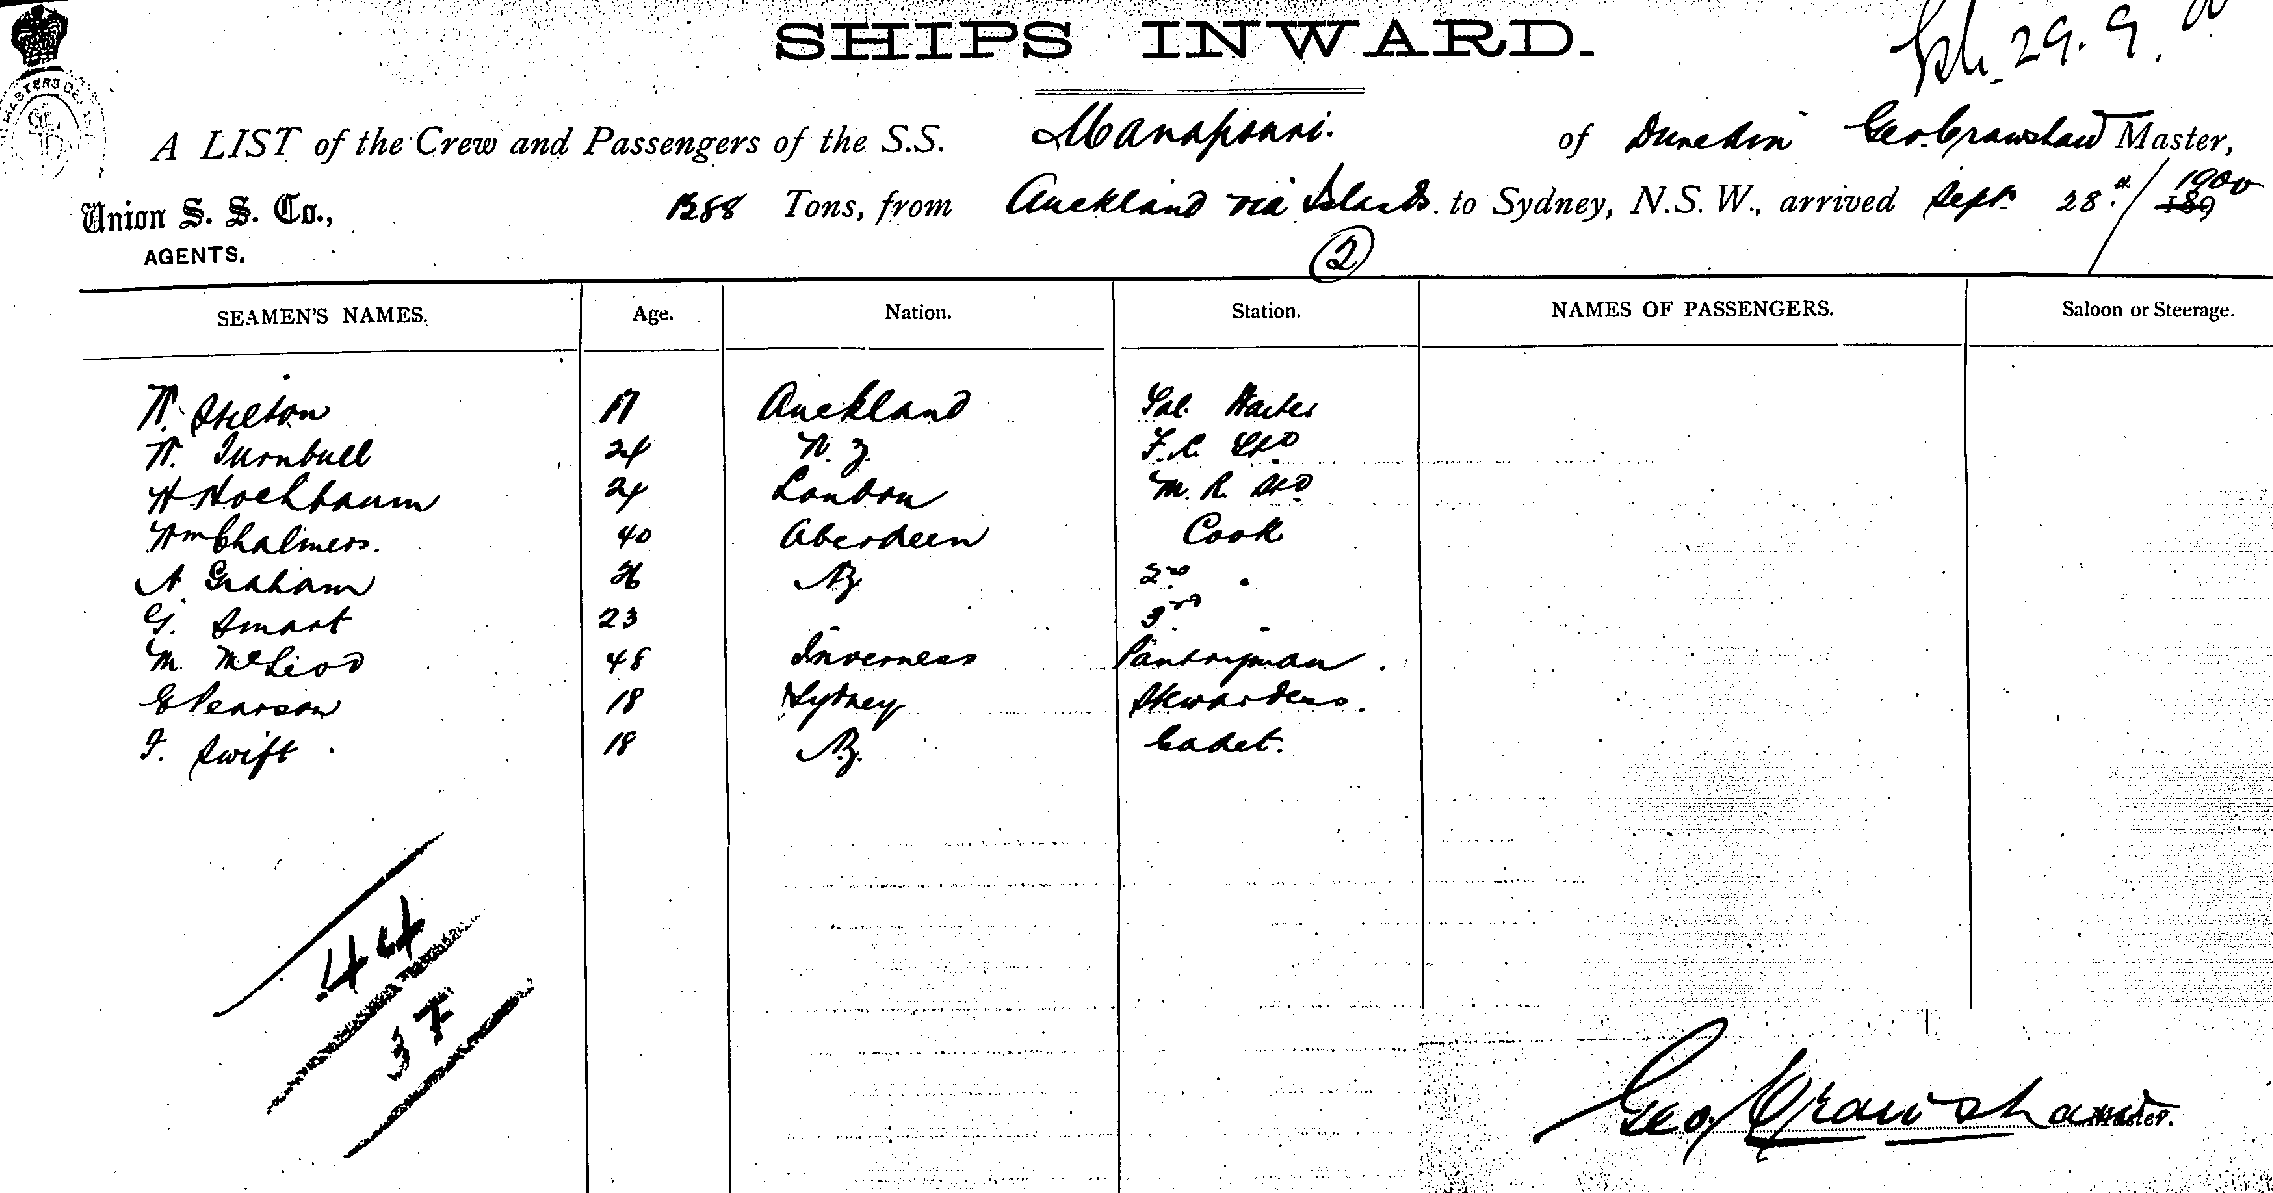 SHIPS INWARD.
29.9.00
A LIST of the Crew and Passengers of the S.S. Manapouri. of Dunedin Geo. Crawshaw Master,
Union S. S. Co., Tons, from Auckland via Islands. to Sydney, N.S.W., arrived Sept. 28th/1900
AGENTS.
2
SEAMEN'S NAMES. Age. Nation. Station. NAMES OF PASSENGERS. Saloon or Steerage.
W. Skelton 17 Auckland Sal. Waiter
W. Turnbull 24 N. Z. F. C. Std
H Hochbaum 24 London M. R. Std
Wm Chalmers. 40 Aberdeen Cook
A. Graham 26 NZ 2nd "
G. Smart 23 3rd
M McLeod 48 Inverness Pantryman.
E Pearson 18 Sydney Stewardess.
F. Swift 18 N.Z. Cadet.
44
37
Geo Crawshaw Master.